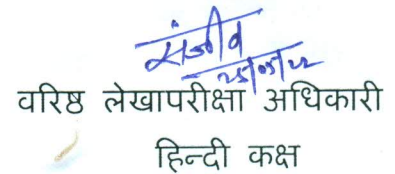 संजीव
वरिष्ठ लेखापरीक्षा अधिकारी
हिन्दी कक्ष